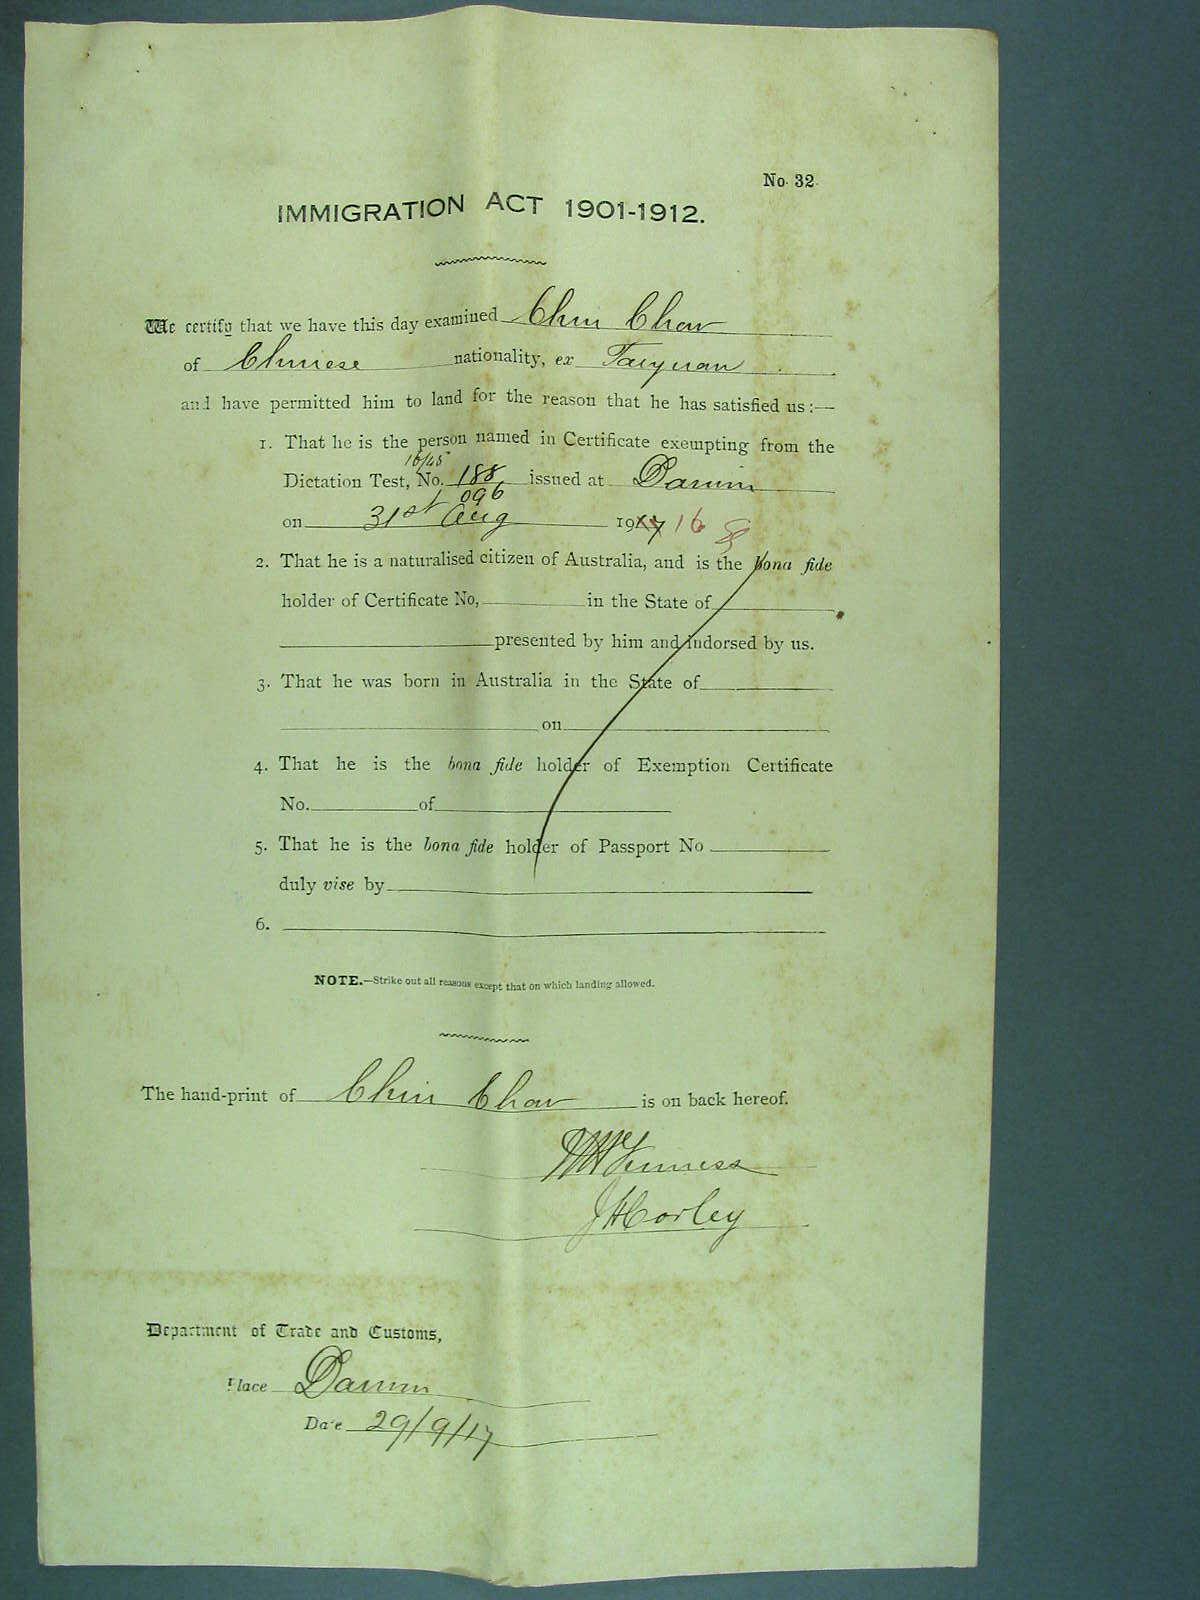 No. 32.
IMMIGRATION ACT 1901-1912.
We certify that we have this day examined Chin Chow
of Chinese nationality, ex Taiyuan
and have permitted him to land for the reason that he has satisfied us:—
1. That he is the person named in Certificate exempting from the
16/45
Dictation Test, No. 188 issued at Darwin
096
on 31st Aug 1917 16
2. That he is a naturalised citizen of Australia, and is the bona fide
holder of Certificate No, in the State of
presented by him and indorsed by us.
3. That he was born in Australia in the State of
on
4. That he is the bona fide holder of Exemption Certificate
No. of
5. That he is the bona fide holder of Passport No
duly vise by
6.
NOTE.—Strike out all reasons except that on which landing allowed.
The hand-print of Chin Chow is on back hereof.
JHCorley
Department of Trade and Customs,
Place Darwin
Date 29/9/17